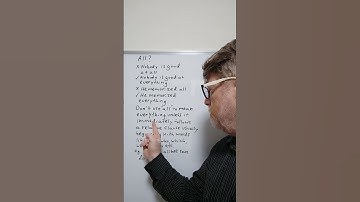 All?
x Nobody is good
at all
✓ Nobody is good at
everything
x He memorized all
✓ He memorized
everything
Don't use all to mean
everything unless it
immediately follows
a relative clause usually
beginning with words
which,